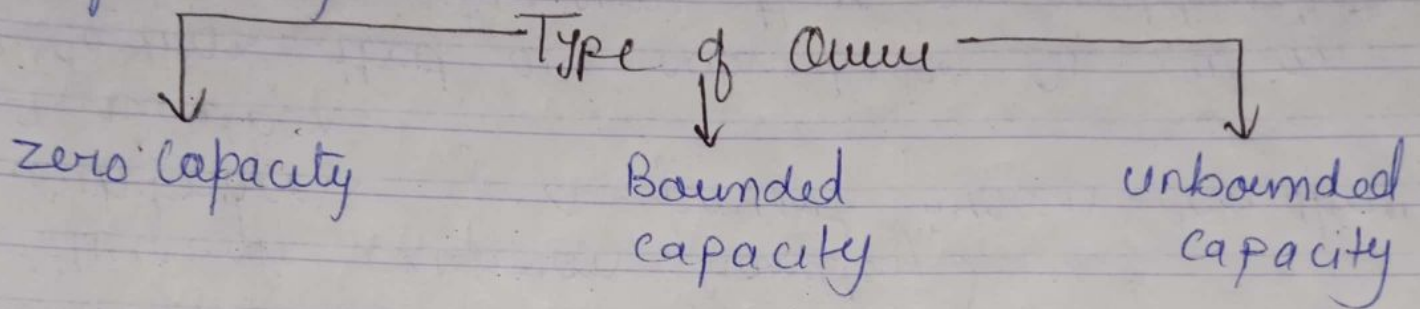 Type of Queue
zero capacity
Bounded
capacity
unbounded
capacity